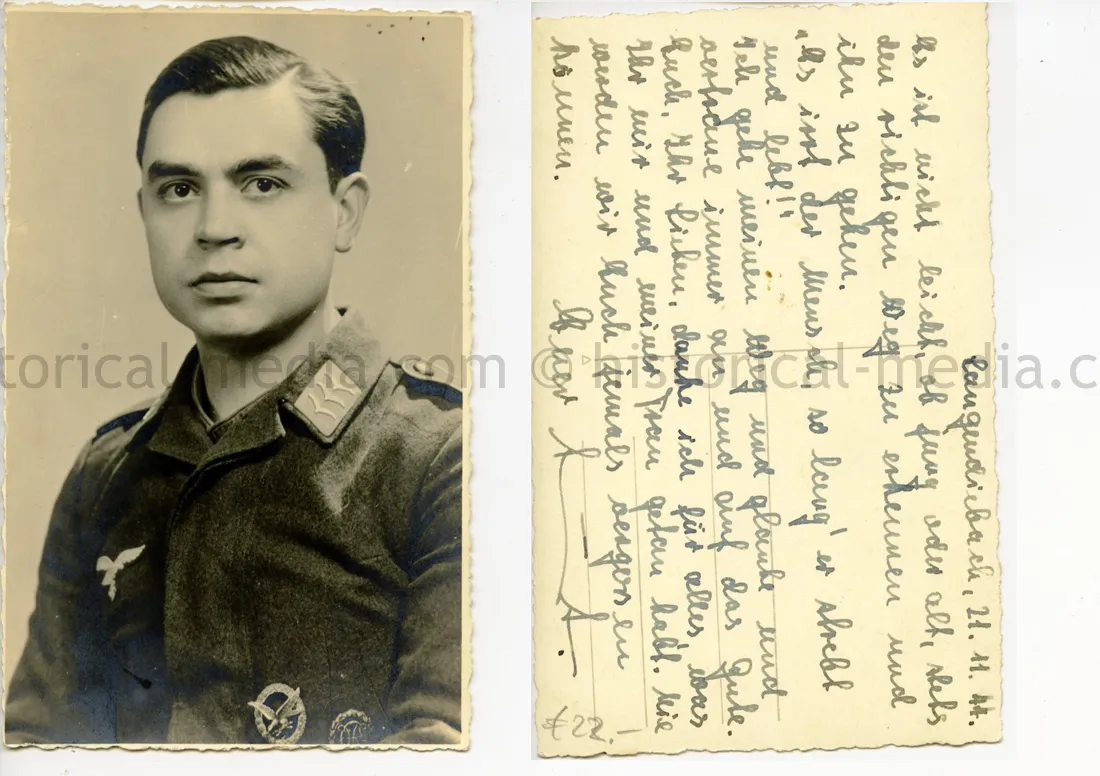 Langendiebach, 21. 11. 44.
Es ist nicht leicht, ob jung oder alt, stets
den richtigen Weg zu erkennen und
ihn zu gehen.
"Es irrt der Mensch, so lang' er strebt
und lebt!"
Ich gehe meinen Weg und glaube und
vertraue immer an und auf das Gute.
Euch, Ihr Lieben, danke ich für alles, was
Ihr mir und meiner Frau getan habt. Nie
werden wir Euch jemals vergessen
können.
Euer
22.-
historical-media.com © historical-media.com